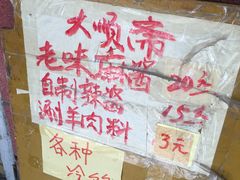 大顺斋
老味麻酱 20元
自制辣酱 15元
涮羊肉料 3元
各种